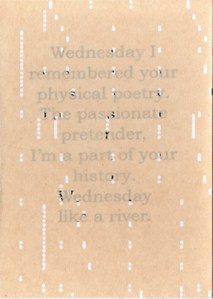 Wednesday I
remembered your
physical poetry.
The passionate
pretender,
I'm a part of your
history.
Wednesday
like a river.